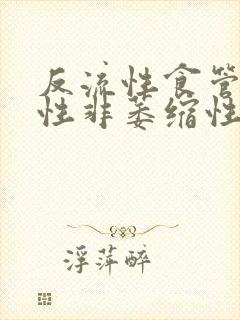 反流性食管
性非萎缩性
浮萍醉